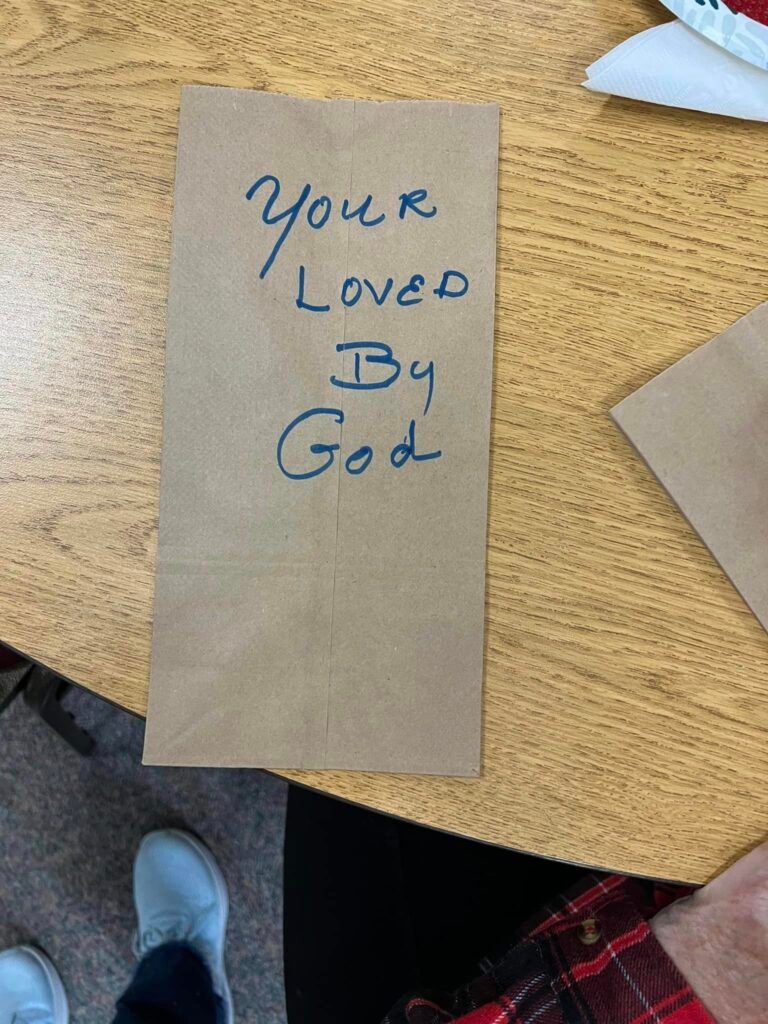 Your
Loved
By
God